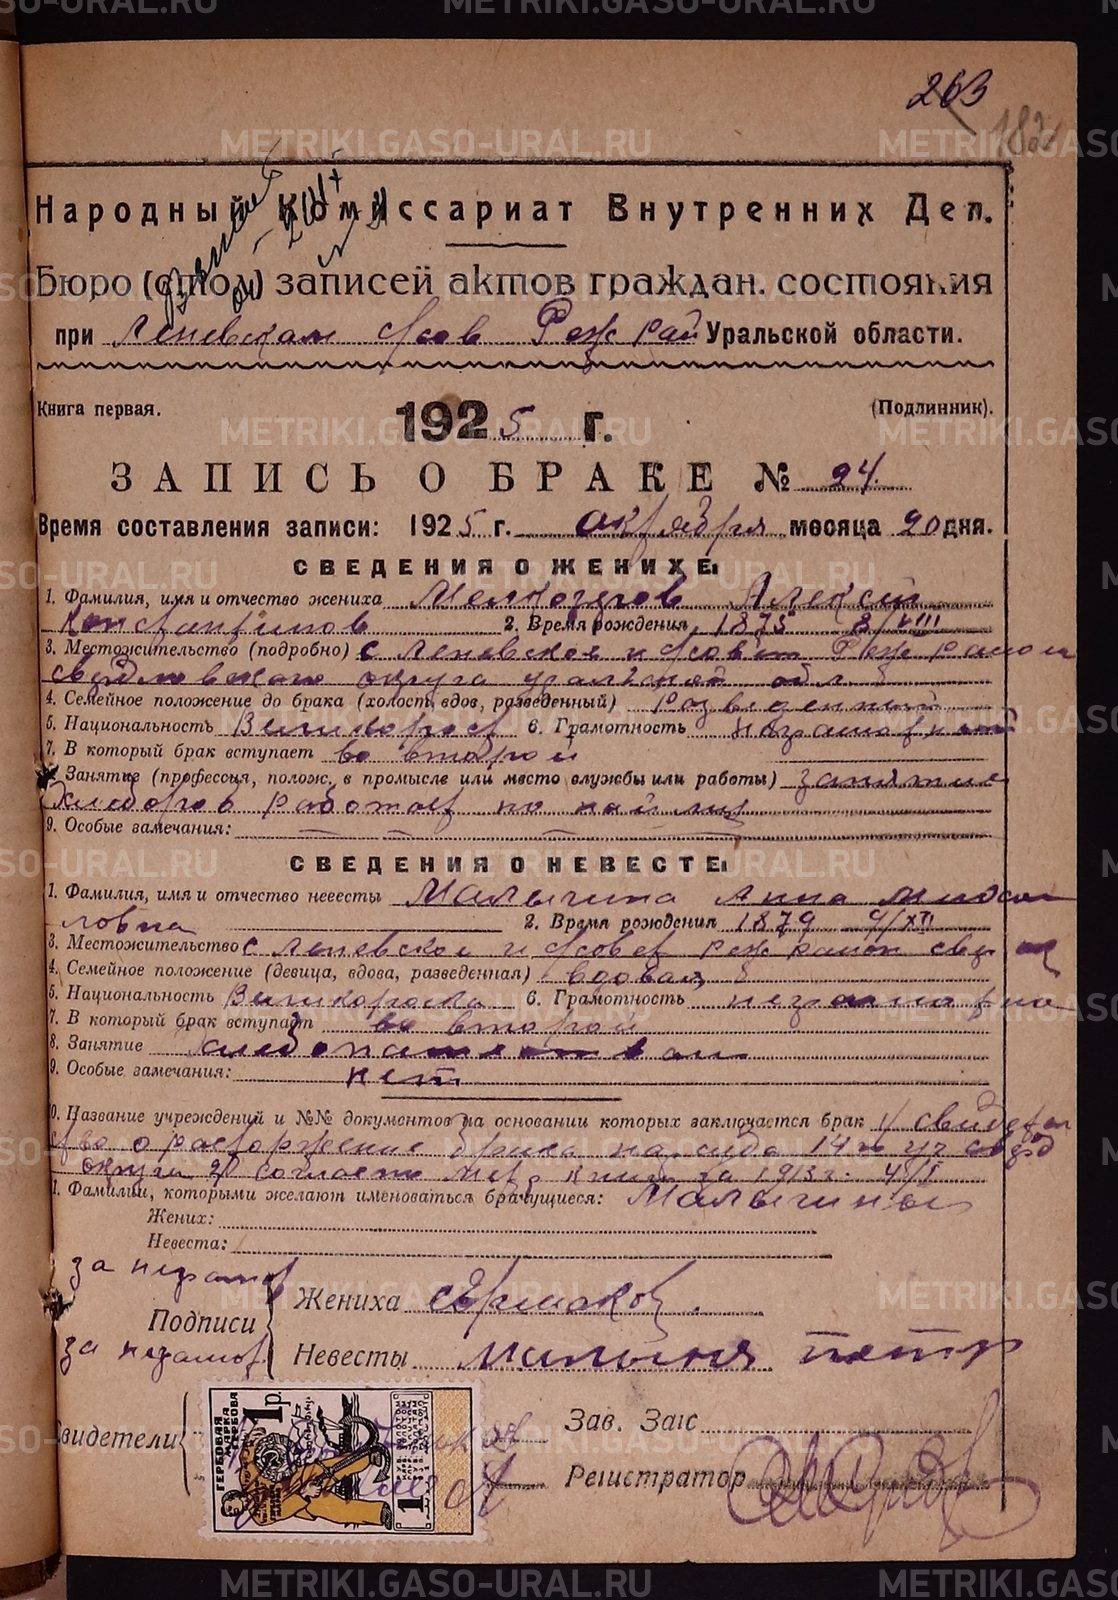 263
182
Народный Комиссариат Внутренних Дел.
Бюро (стпол) записей актов граждан. состояния
при Леневском с/сов Реж рай Уральской области.
Книга первая. (Подлинник).
1925 г.
ЗАПИСЬ О БРАКЕ № 24.
Время составления записи: 1925 г. октября месяца 20 дня.
СВЕДЕНИЯ О ЖЕНИХЕ:
1. Фамилия, имя и отчество жениха Алексей
Константинов 2. Время рождения 1875 8/VIII
3. Местожительство (подробно) с Леневское и/совет Реж района
свердловского округа уральской обл.
4. Семейное положение до брака (холост, вдов, разведенный) Разведенный
5. Национальность Великоросс 6. Грамотность неграмотный
7. В который брак вступает во второй
8. Занятие (профессия, полож. в промысле или место службы или работы) занятие
хлебороб работает по найму
9. Особые замечания:
СВЕДЕНИЯ О НЕВЕСТЕ:
1. Фамилия, имя и отчество невесты Малыгина Анна Михай
ловна 2. Время рождения 1879 9/XII
3. Местожительство с Леневское и/совет реж район свер
4. Семейное положение (девица, вдова, разведенная) вдовая
5. Национальность Великоросска 6. Грамотность неграмотна
7. В который брак вступает во второй
8. Занятие хлебопашество
9. Особые замечания: нет
10. Название учреждений и №№ документов на основании которых заключается брак 1/ свидетель
ство о расторжение брака нарсуда 14 го уч сверд
округа 2/ согласно мет. книг за 1913 г. 4/I
11. Фамилии, которыми желают именоваться брачущиеся: Малыгины
Жених:
Невеста:
за неграмот
Подписи Жениха Ермаков.
за неграмот Невесты Петр
Свидетели
Зав. Загс
Регистратор
ГЕРБОВАЯ МАРКА
1 р.
1
METRIKI.GASO-URAL.RU